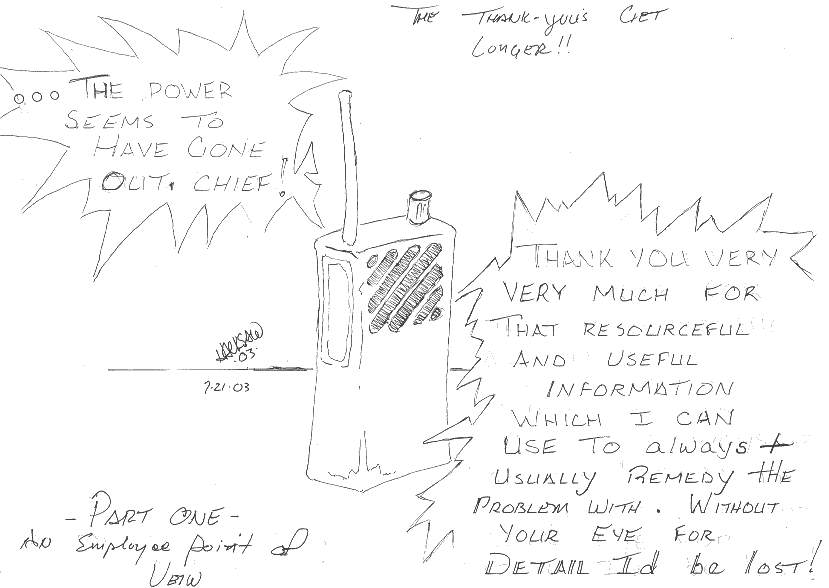 THE THANK-YOU'S GET
LONGER!!
... THE POWER
SEEMS TO
HAVE GONE
OUT, CHIEF!
THANK YOU VERY
VERY MUCH FOR
THAT RESOURCEFUL
AND USEFUL
INFORMATION
WHICH I CAN
USE TO always +
USUALLY REMEDY THE
PROBLEM WITH. WITHOUT
YOUR EYE FOR
DETAIL Id be lost!
03
7-21-03
- PART ONE -
AN Employee point of
VEIW